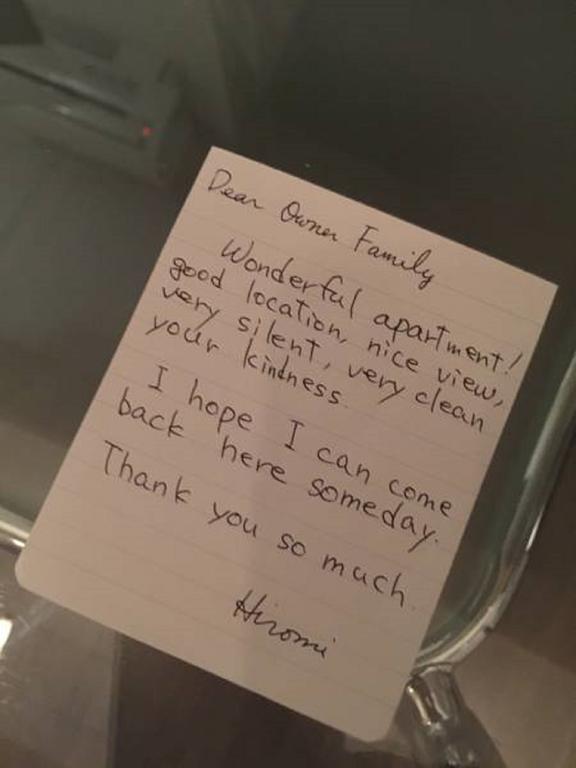 Dear Owner Family
Wonderful apartment!
good location, nice view,
very silent, very clean
your kindness.
I hope I can come
back here someday.
Thank you so much.
Hiromi